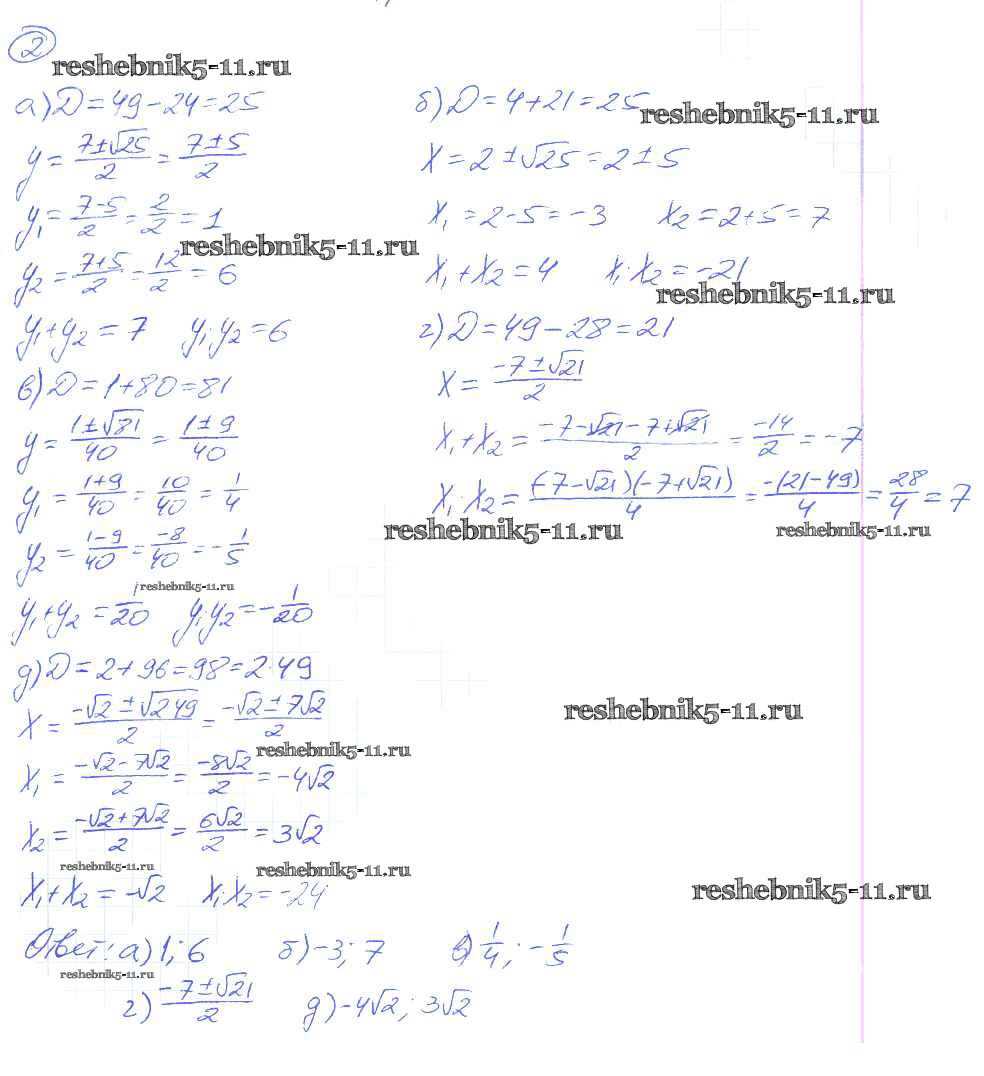 2
reshebnik5-11.ru
а) D = 49 - 24 = 25
y = (7 ± √25)/2 = (7 ± 5)/2
y₁ = (7-5)/2 = 2/2 = 1
reshebnik5-11.ru
y₂ = (7+5)/2 = 12/2 = 6
y₁ + y₂ = 7 y₁·y₂ = 6
в) D = 1 + 80 = 81
y = (1 ± √81)/40 = (1 ± 9)/40
y₁ = (1+9)/40 = 10/40 = 1/4
y₂ = (1-9)/40 = -8/40 = -1/5
reshebnik5-11.ru
y₁ + y₂ = 1/20 y₁·y₂ = -1/20
д) D = 2 + 96 = 98 = 2·49
x = (-√2 ± √2·49)/2 = (-√2 ± 7√2)/2
reshebnik5-11.ru
x₁ = (-√2 - 7√2)/2 = -8√2/2 = -4√2
x₂ = (-√2 + 7√2)/2 = 6√2/2 = 3√2
reshebnik5-11.ru
reshebnik5-11.ru
x₁ + x₂ = -√2 x₁·x₂ = -24
б) D = 4 + 21 = 25
reshebnik5-11.ru
x = 2 ± √25 = 2 ± 5
x₁ = 2 - 5 = -3 x₂ = 2 + 5 = 7
x₁ + x₂ = 4 x₁·x₂ = -21
reshebnik5-11.ru
г) D = 49 - 28 = 21
x = (-7 ± √21)/2
x₁ + x₂ = (-7 - √21 - 7 + √21)/2 = -14/2 = -7
x₁·x₂ = (-7 - √21)(-7 + √21)/4 = -(21 - 49)/4 = 28/4 = 7
reshebnik5-11.ru
reshebnik5-11.ru
reshebnik5-11.ru
reshebnik5-11.ru
Ответ: а) 1; 6 б) -3; 7 в) 1/4; -1/5
reshebnik5-11.ru
г) (-7 ± √21)/2 д) -4√2; 3√2